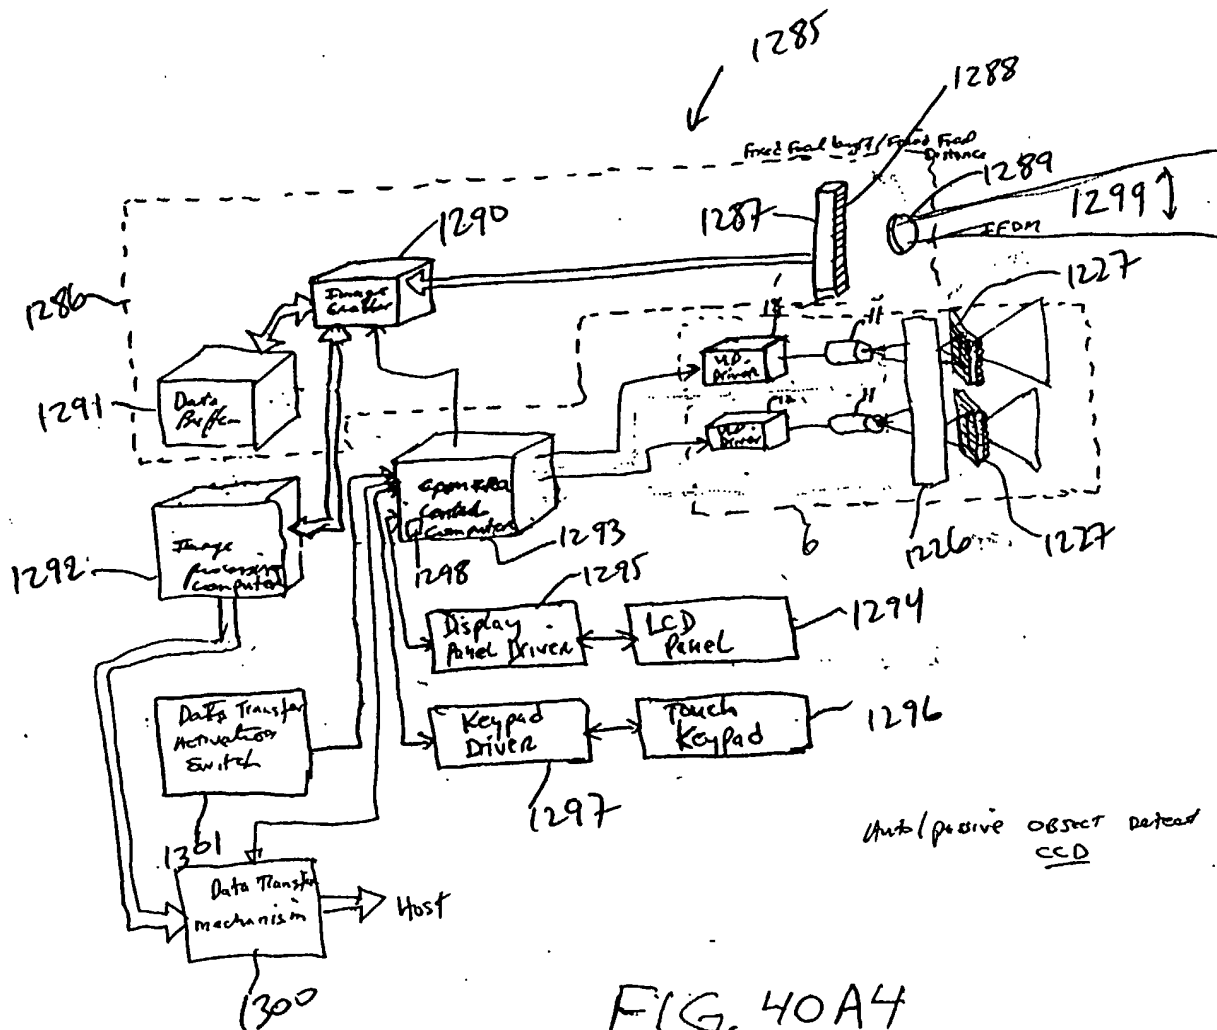 1285
1288
Fixed Focal / Fixed Focal
Distance
1289
1299
IFDM
1287
1290
Image
Grabber
1286
1227
18
11
VLD
Driver
1291
Data
Buffer
18
11
VLD
Driver
Camera
Control
Computer
1298
1293
6
1226
1227
1292
Image
processing
computer
1295
1294
Display
Panel Driver
LCD
Panel
Data Transfer
Activation
Switch
Keypad
Driver
Touch
Keypad
1296
1297
1301
Auto/passive OBJECT Detect
CCD
Data Transfer
mechanism
Host
1300
FIG. 40A4